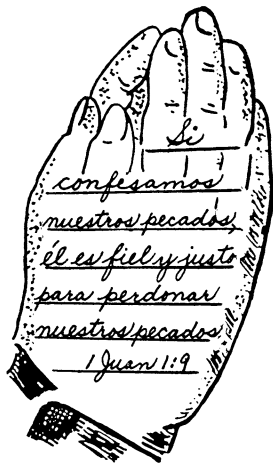 Si
confesamos
nuestros pecados,
él es fiel y justo
para perdonar
nuestros pecados
1 Juan 1:9